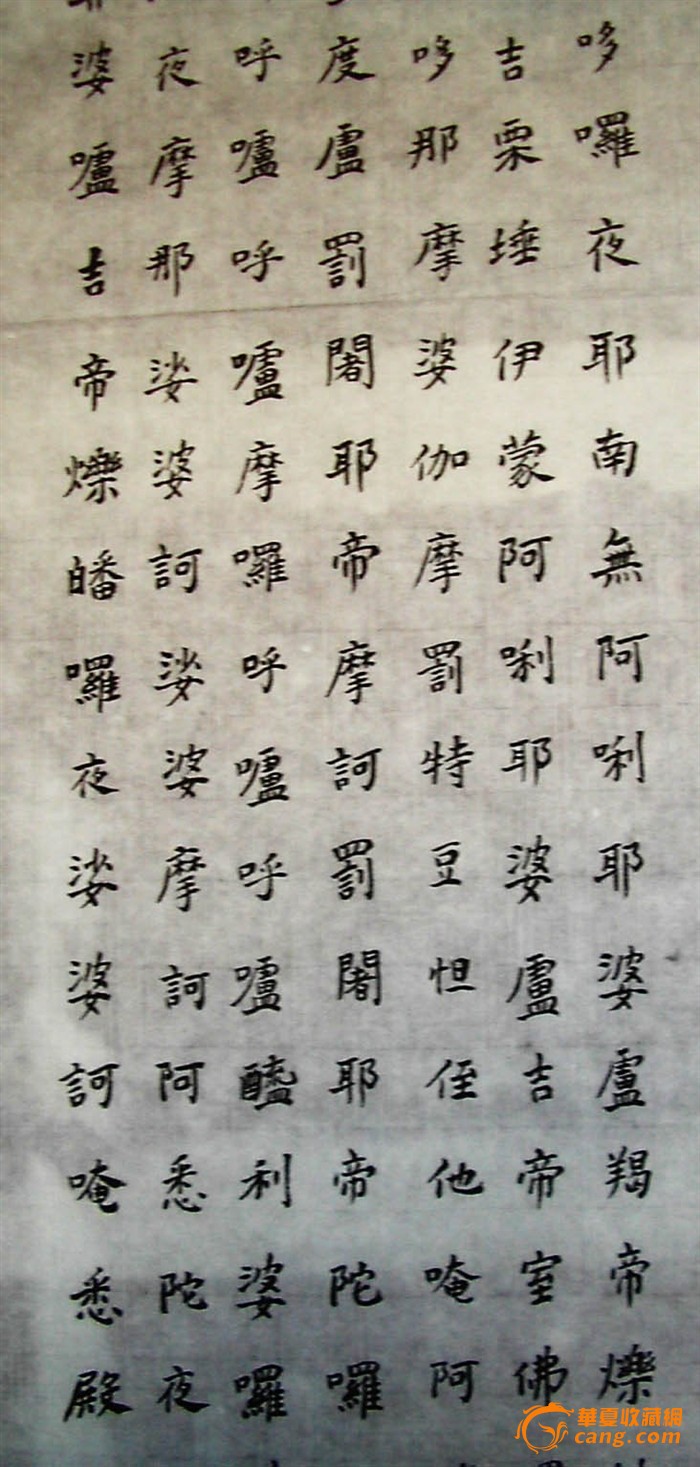 哆囉夜耶南無阿唎耶婆盧羯帝爍
吉栗埵伊蒙阿唎耶婆盧吉帝室佛
哆那摩婆伽摩罰特豆怛侄他唵阿
度盧罰闍耶帝摩訶罰闍耶帝陀囉
呼嚧呼嚧摩囉呼嚧呼嚧醯利婆囉
夜摩那娑婆訶娑婆摩訶阿悉陀夜
婆嚧吉帝爍皤囉夜娑婆訶唵悉殿
華夏收藏網
cang.com